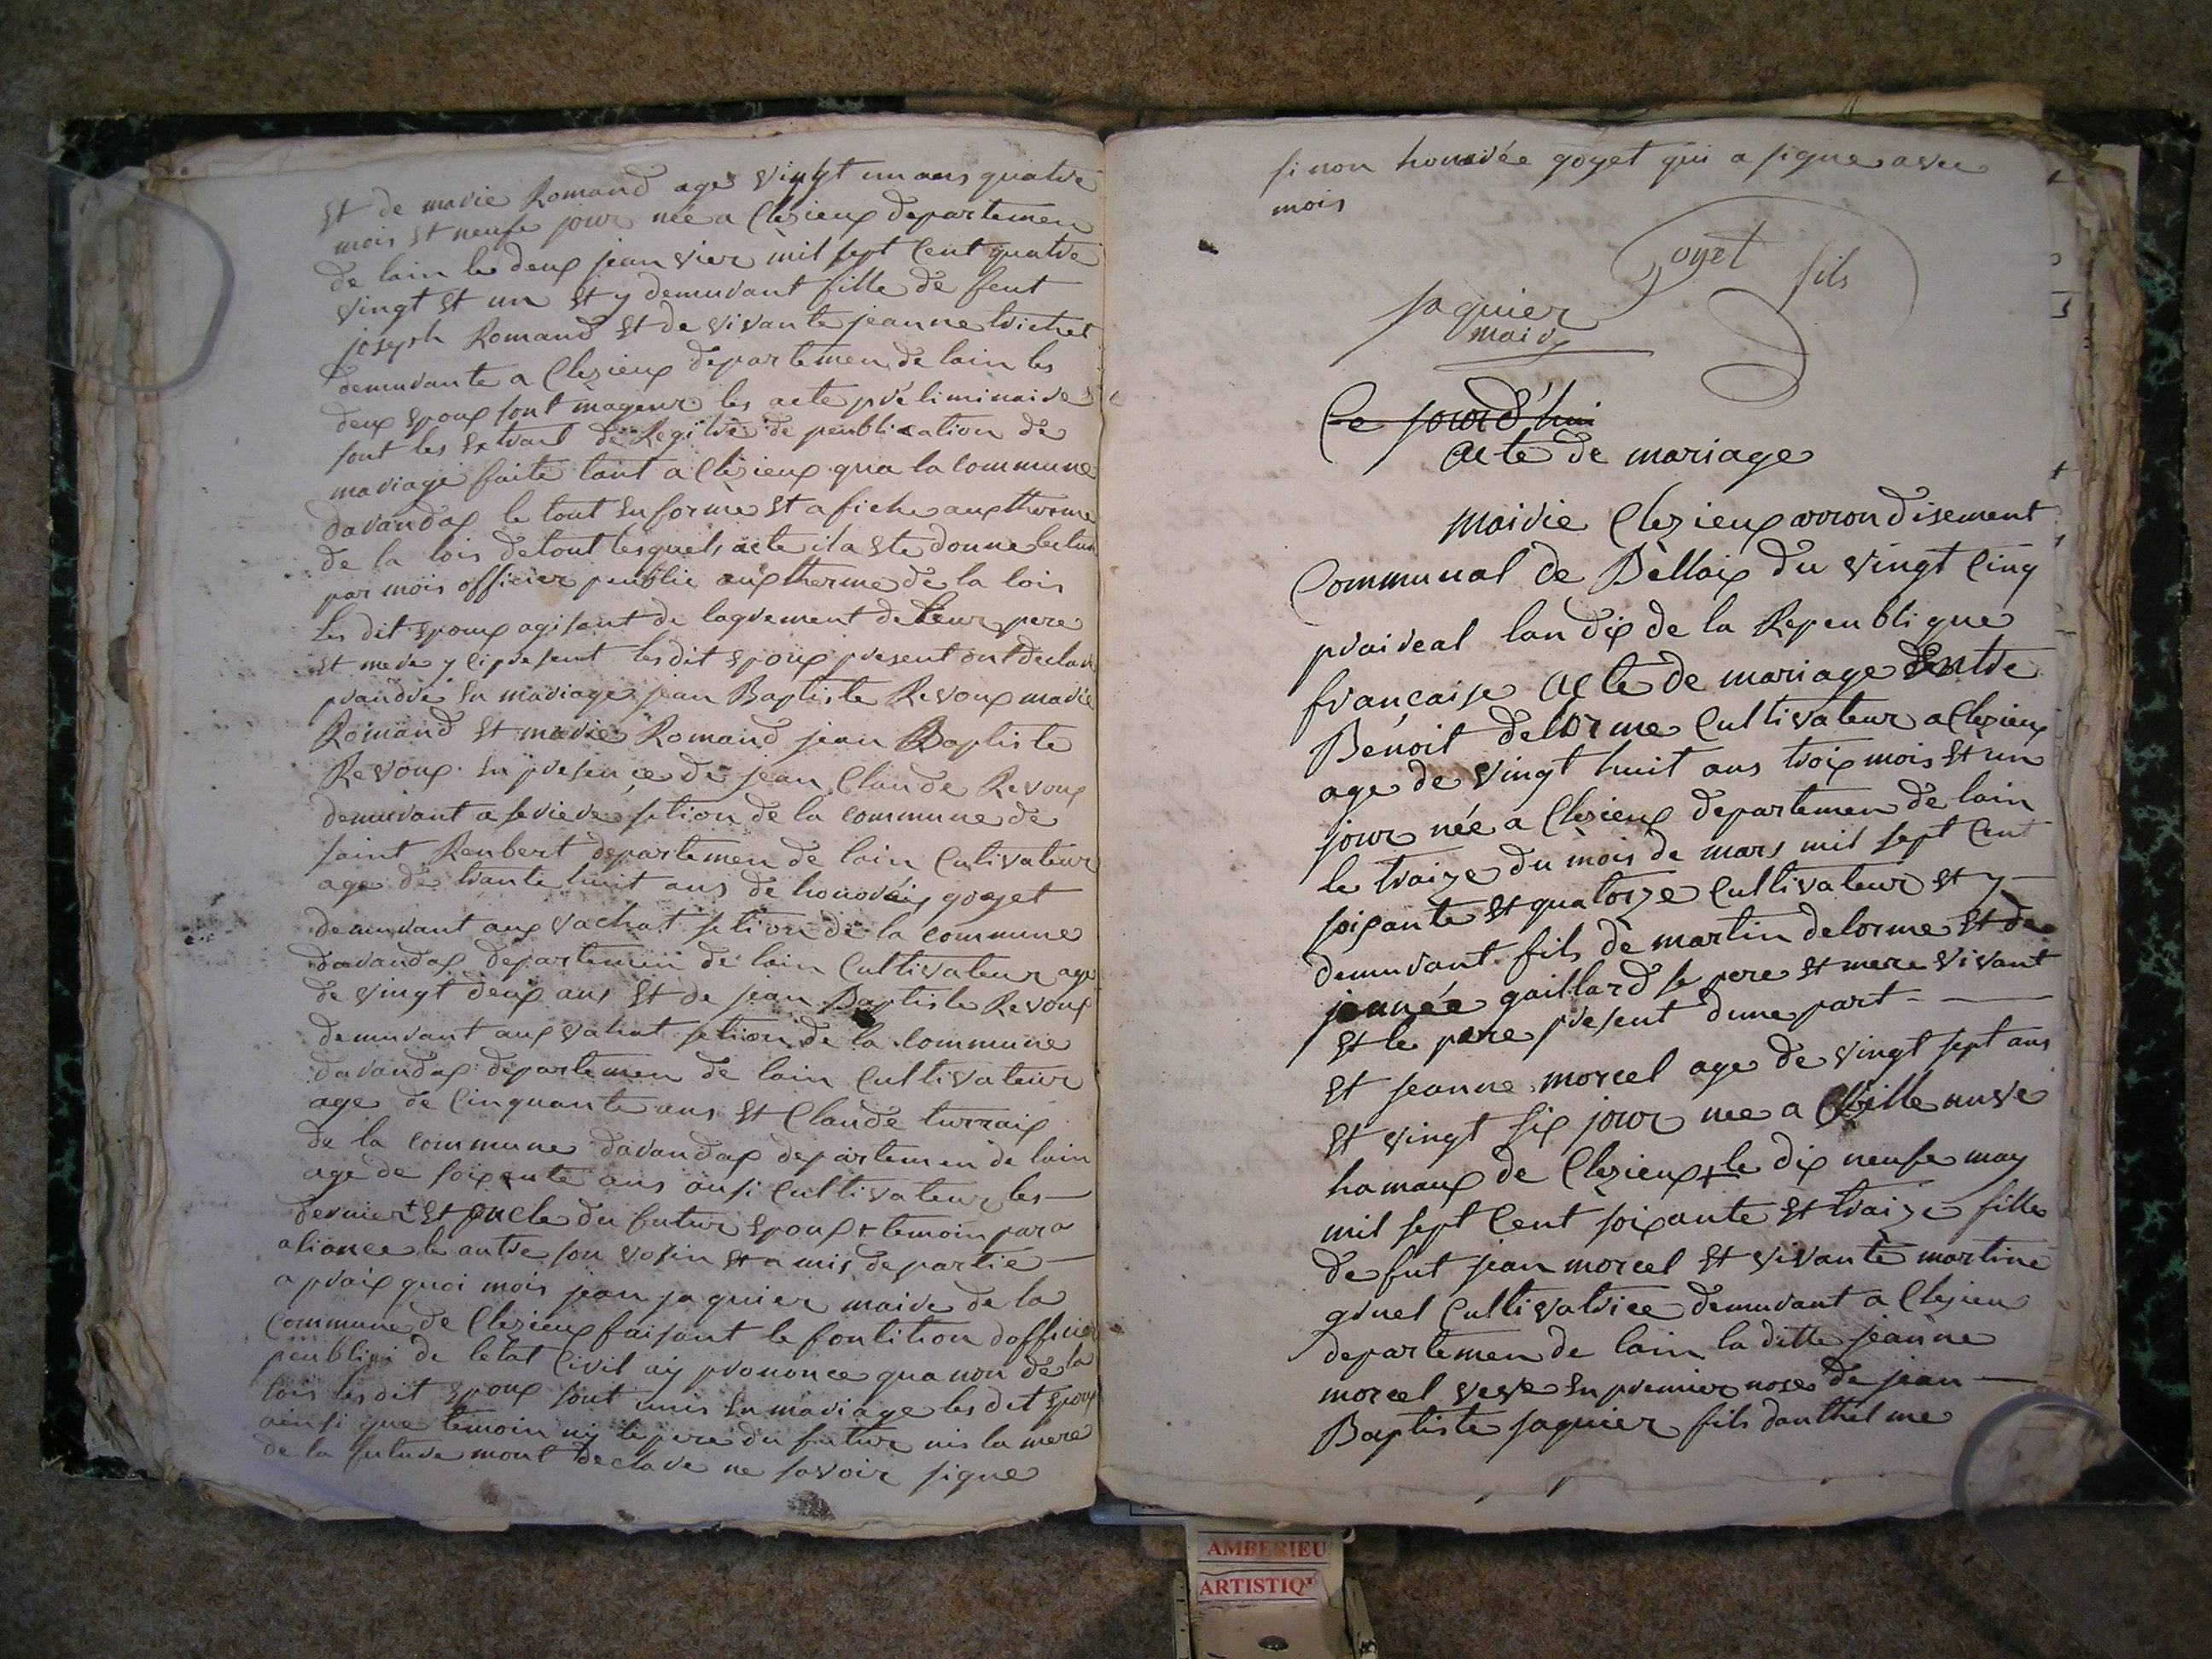 Et de marie Romand age vingt un ans quatre
mois et neufe jour née a Clezieux departemen
de lain le deux jeanvier mil sept Cent quatre
vingt et un et y demurant fille de feut
joseph Romand et de vivante jeanne
demurante a Clezieux departemen de lain les
deux epoux sont mageur les acte préliminaire
sont les Extrait de Regitre de peublication de
mariage faite tant a Clezieux qua la Commune
davandax le tout en forme et afiche aux therme
de la lois de tout lesquels acte il a ete donne lectur
par mois officier peublic aux therme de la lois
Les dit epoux agisant de lagrement de leur pere
et mere y ci present lesdit epoux present ont declare
prandre en mariage jean Baptiste Revoux marie
Romand et marie Romand jean Baptiste
Revoux en presence de jean Claude Revoux
demurant a setion de la commune de
saint Renbert departemen de lain Cultivateur
age de trante huit ans de honoré goyet
demurant aux vachat setion de la commune
davandax departemen de lain Cultivateur age
de vingt deux ans et de jean Baptiste Revoux
demurant aux vahat setion de la commune
davandax departemen de lain Cultivateur
age de Cinquante ans et Claude turraix
de la commune davandax departemen de lain
age de soixante ans ausi Cultivateur les
dernier+ et oncle du futur epoux + temoin par
alience le autre son vosin et amis de partie
apraix quoi mois jean jaquier maire de la
Commune de Clezieux faisant le fontition dofficier
peublique de letat Civil aiy prononce qua non de la
lois lesdit epoux sont unis en mariage lesdit epoux
ainsi que temoin niy le pere du futur nis la mere
de la future mont declare ne savoir signe
si non honorée goyet qui a signe avec
mois
Goyet fils
jaquier
maire
Ce jourd'hui
acte de mariage
mairie Clezieux arrondisement
Communal de Bellaix du vingt Cinq
praireal lan dix de la Republique
française acte de mariage Entre
Benoit delorme Cultivateur a Clezieux
age de vingt huit ans troix mois et un
jour née a Clezieux departemen de lain
le traize du mois de mars mil sept Cent
soixante et quatorze Cultivateur et y
demurant fils de martin delorme et de
jeannée gaillard se pere et mere vivant
et le pere present dune part
et jeanne morcel age de vingt sept ans
et vingt six jour née a Villenuve
hamaux de Clezieux le dix neufe may
mil sept Cent soixante et traize fille
de fut jean morcel et vivante martine
gruel Cultivatrice demurant a Clezieu
departemen de lain la ditte jeanne
morcel veve en premier nose de jean
Baptiste jaquier fils danthelme
AMBERIEU
ARTISTIQ